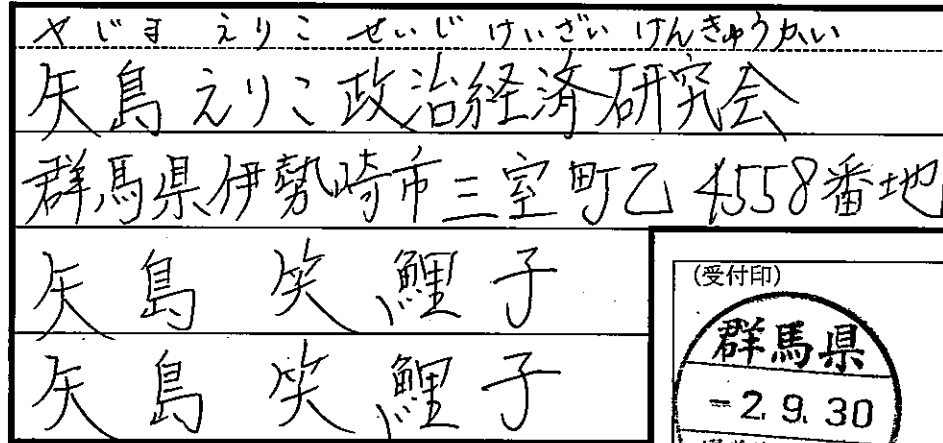 やじま えりこ せいじ けいざい けんきゅうかい
矢島えりこ政治経済研究会
群馬県伊勢崎市三室町乙4558番地
矢島笑鯉子
矢島笑鯉子
(受付印)
群馬県
-2.9.30